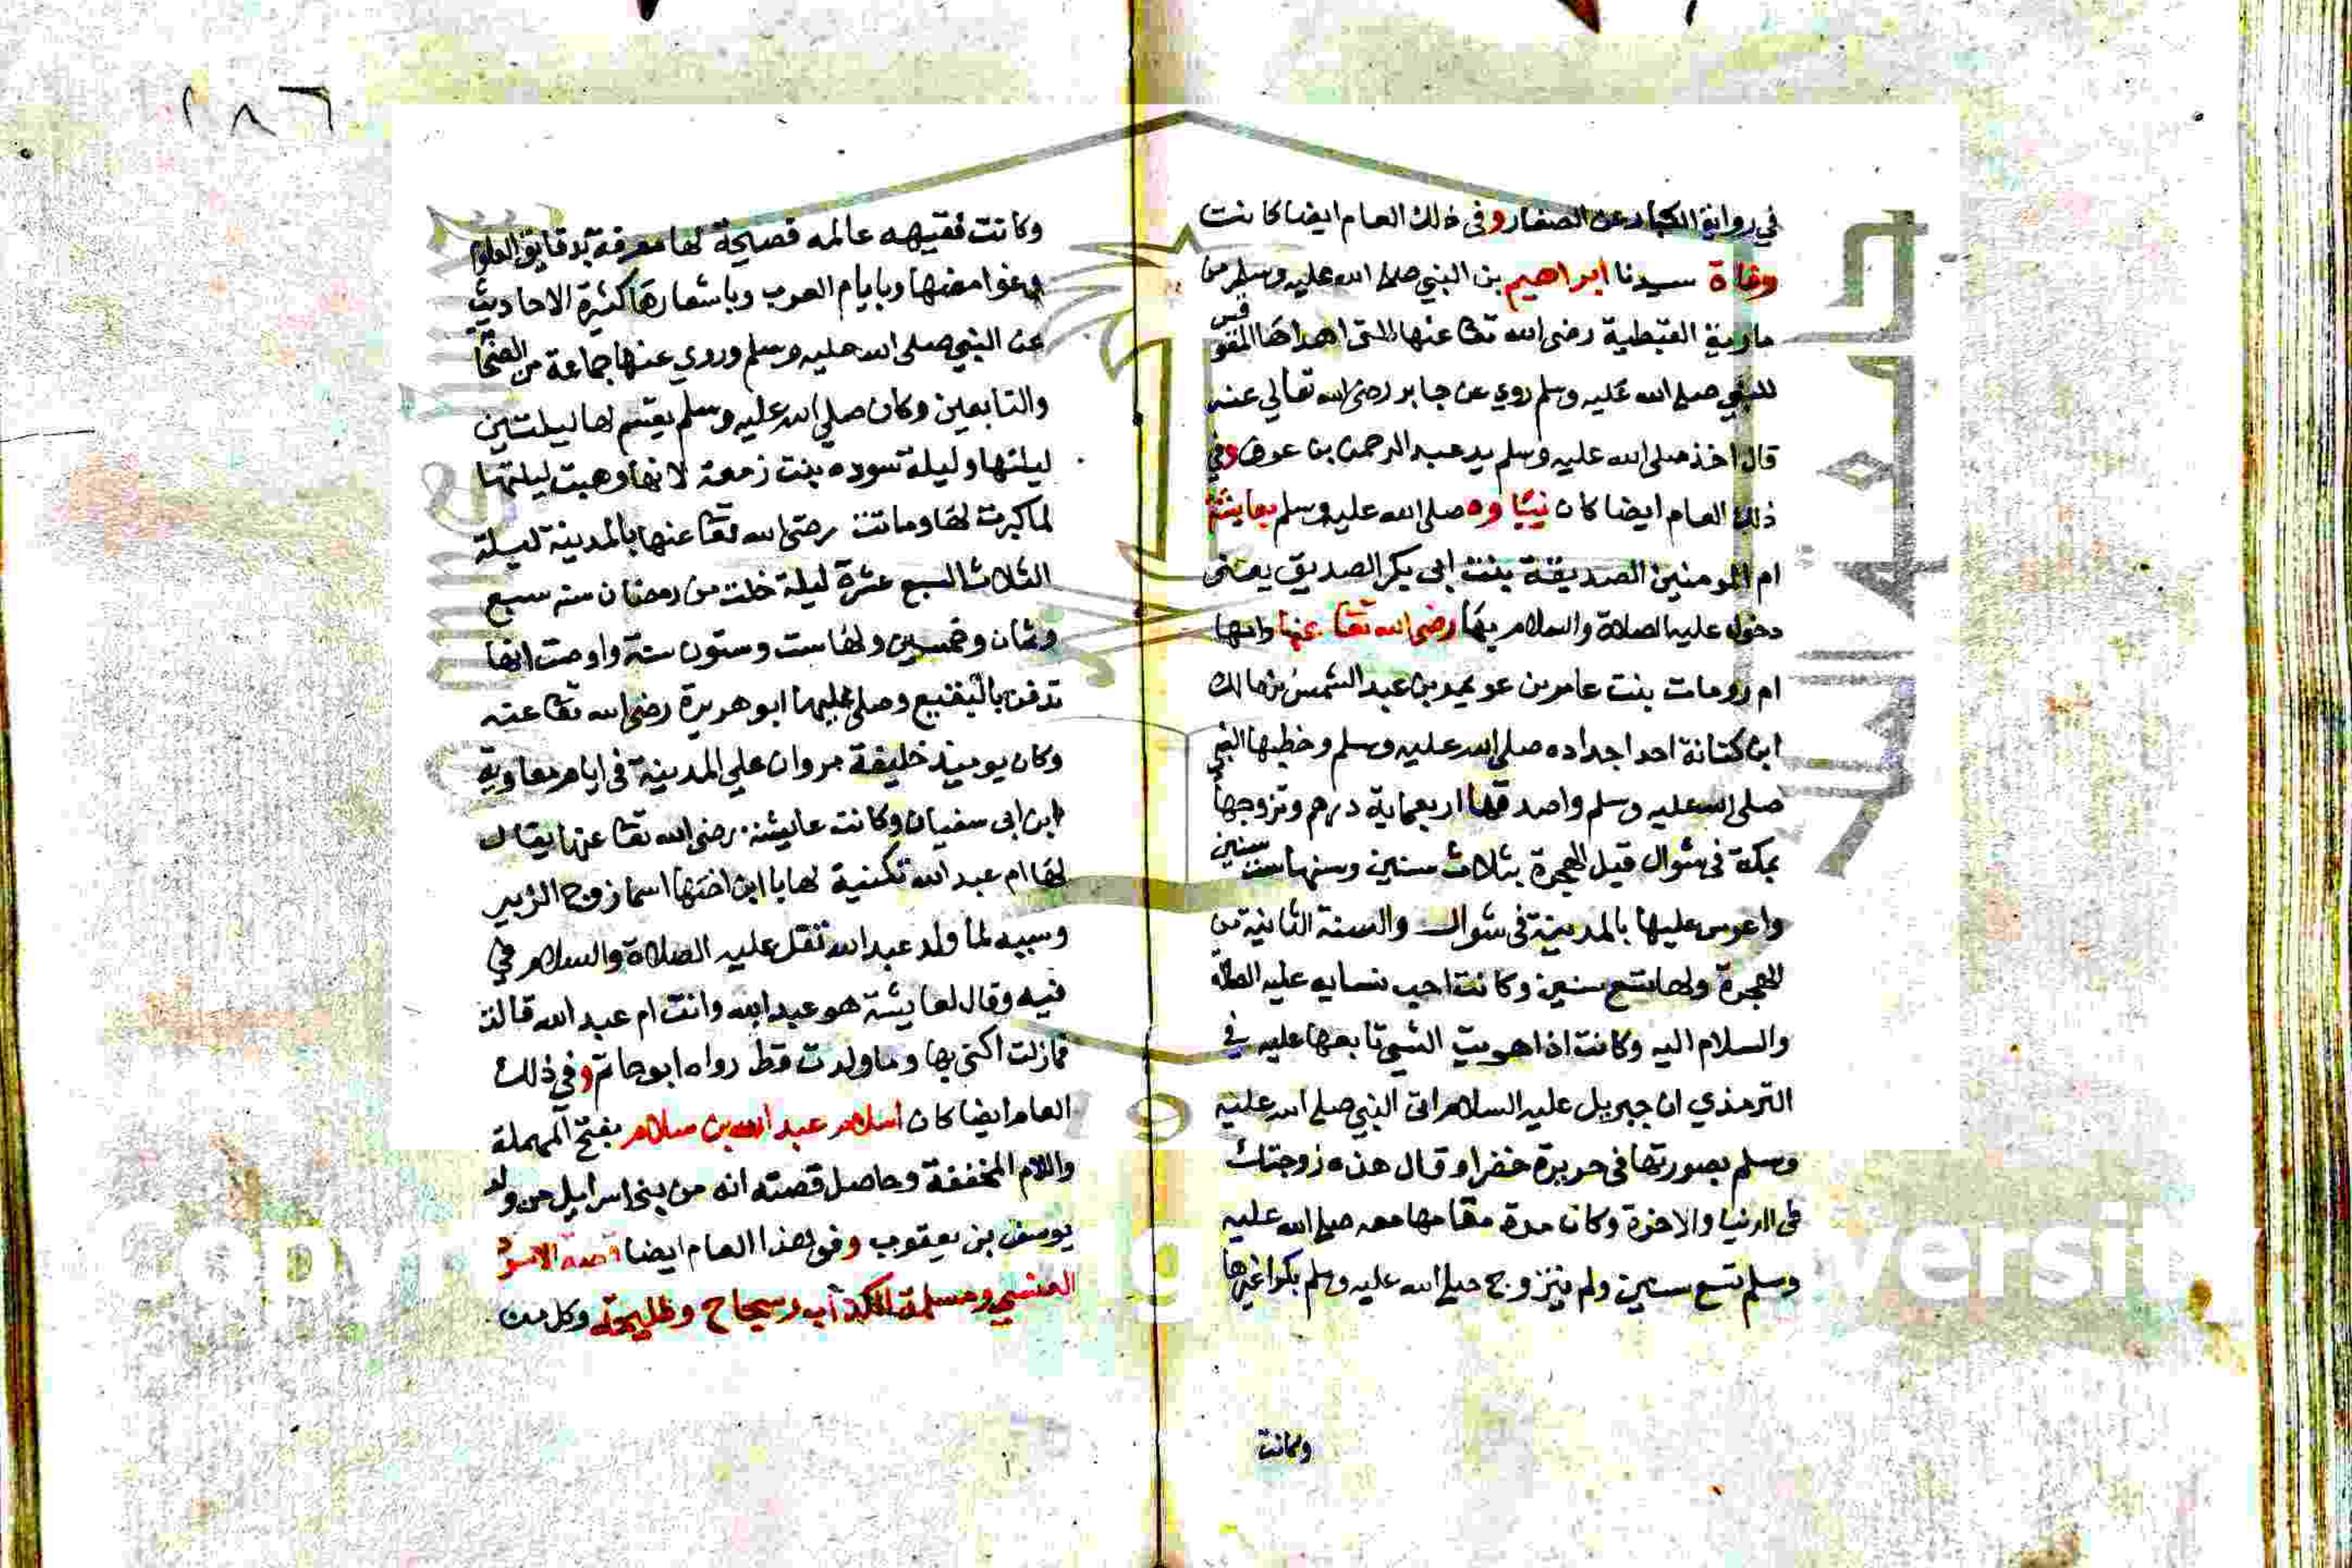 في رواية الكبار عن الصغار وفى ذلك العام ايضا كانت
وفاة سيدنا ابراهيم بن النبي صلى الله عليه وسلم من
مارية القبطية رضى الله تعا عنها التى اهداها المقوقس
للنبي صلى الله عليه وسلم روي عن جابر رضى الله تعالي عنه
قال اخذ صلى الله عليه وسلم يد عبد الرحمن بن عوف وفي
ذلك العام ايضا كان بناوه صلى الله عليه وسلم بعايشة
ام المومنين الصديقة بنت ابى بكر الصديق يعنى
دخوله عليه الصلاة والسلام بها رضى الله تعا عنها وامها
ام رومات بنت عامر بن عويمر بن عبد الشمس بن مالك
ابن كنانة احد اجداده صلى الله عليه وسلم وخطبها النبي
صلى الله عليه وسلم واصدقها اربعماية درهم وتزوجها
بمكة فى شوال قبل الهجرة بثلاث سنين وسنها ست سنين
واعرس عليها بالمدينة فى شوال والسنة الثانية من
الهجرة ولها تسع سنين وكانت احب نسايه عليه الصلاة
والسلام اليه وكانت اذا هويت الشي تابعها عليه في
الترمذي ان جبريل عليه السلام اتى النبي صلى الله عليه
وسلم بصورتها فى حريرة خضرا وقال هذه زوجتك
فى الدنيا والاخرة وكان مدة مقامها معه صلى الله عليه
وسلم تسع سنين ولم يتزوج صلى الله عليه وسلم بكرا غيرها
وكانت
٢٨٦
وكانت فقيهه عالمه فصيحة لها معرفة بدقايق العلوم
وغوامضها وبايام العرب وباشعارها كثيرة الاحاديث
عن النبي صلى الله عليه وسلم وروي عنها جماعة من الصحا
والتابعين وكان صلى الله عليه وسلم يقسم لها ليلتين
ليلتها وليلة سوده بنت زمعة لانها وهبت ليلتها
لما كبرت لها وماتت رضى الله تعا عنها بالمدينة ليلة
الثلاث السبع عشرة ليلة خلت من رمضان سنه سبع
وثمان وخمسين ولها ست وستون سنة واوصت انها
تدفن بالبقيع وصلى عليها ابو هريرة رضى الله تعا عنه
وكان يوميذ خليفة مروان علي المدينة فى ايام معاوية
ابن ابى سفيان وكانت عايشة رضى الله تعا عنها يقال
لها ام عبد الله تكنية لها با ابن اختها اسما زوج الزبير
وسببه لما ولد عبد الله تفل عليه الصلاة والسلام في
فيه وقال لعايشة هو عبد الله وانت ام عبد الله قالت
فمازلت اكتى بها وما ولدت قط رواه ابو حاتم وفى ذلك
العام ايضا كان اسلام عبد الله بن سلام بفتح المهملة
واللام المخففة وحاصل قصته انه من بنى اسرايل من ولد
يوسف بن يعقوب وفى هذا العام ايضا قصة الاسود
العنسي ومسلمة الكذاب وسجاح وطليحة وكل من